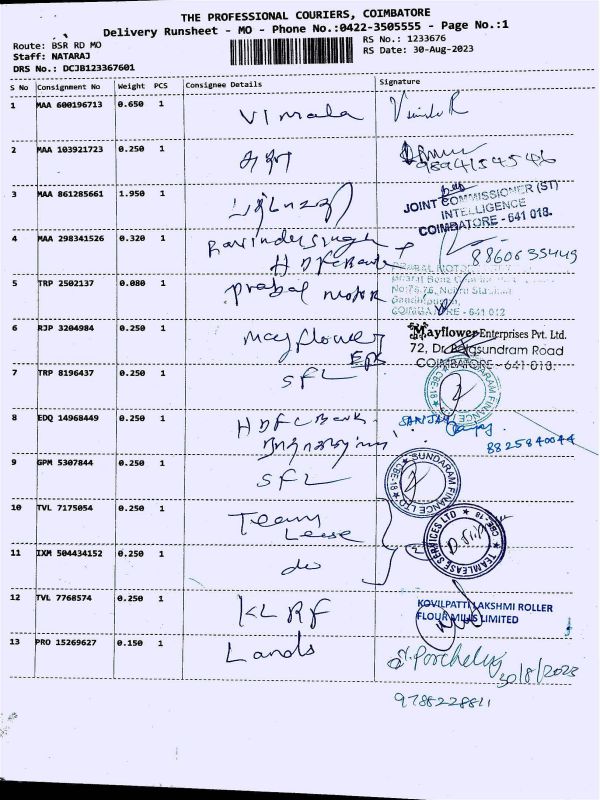 THE PROFESSIONAL COURIERS, COIMBATORE
Delivery Runsheet - MO - Phone No.:0422-3505555 - Page No.:1
Route: BSR RD MO
RS No.: 1233676
Staff: NATARAJ
RS Date: 30-Aug-2023
DRS No.: DCJB123367601
S No Consignment No Weight PCS Consignee Details Signature
1 MAA 600196713 0.650 1 Vimala
2 MAA 103921723 0.250 1
9894154546
3 MAA 861285661 1.950 1
JOINT COMMISSIONER (ST)
INTELLIGENCE
COIMBATORE - 641 018.
4 MAA 298341526 0.320 1 Ravindersingh
HDFC Bank
8860635449
5 TRP 2502137 0.080 1 Prabal motor
COIMBATORE - 641 012
6 RJP 3204984 0.250 1 Mayflower
Mayflower Enterprises Pvt. Ltd.
72, Dr. Balasundram Road
COIMBATORE - 641 018.
7 TRP 8196437 0.250 1 SFL
SUNDARAM FINANCE
CBE-18
8 EDQ 14968449 0.250 1 HDFC Bank
8825840044
9 GPM 5307844 0.250 1 SFL
SUNDARAM FINANCE LTD
CBE-18
10 TVL 7175054 0.250 1 Team
Lease
TEAMLEASE SERVICES LTD
CBE-18
11 IXM 504434152 0.250 1 do
12 TVL 7768574 0.250 1 KLRF
KOVILPATTI LAKSHMI ROLLER
FLOUR MILLS LIMITED
13 PRO 15269627 0.150 1 Lands
30/8/2023
9788228811